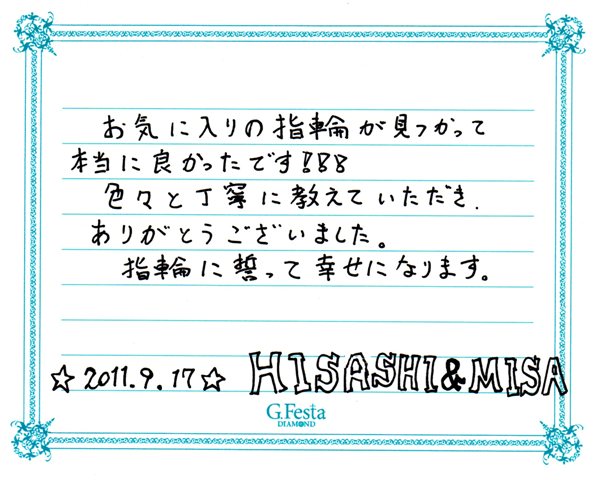 お気に入りの指輪が見つかって
本当に良かったです!!!
色々と丁寧に教えていただき、
ありがとうございました。
指輪に誓って幸せになります。
☆2011.9.17☆ HISASHI&MISA
G.Festa
DIAMOND